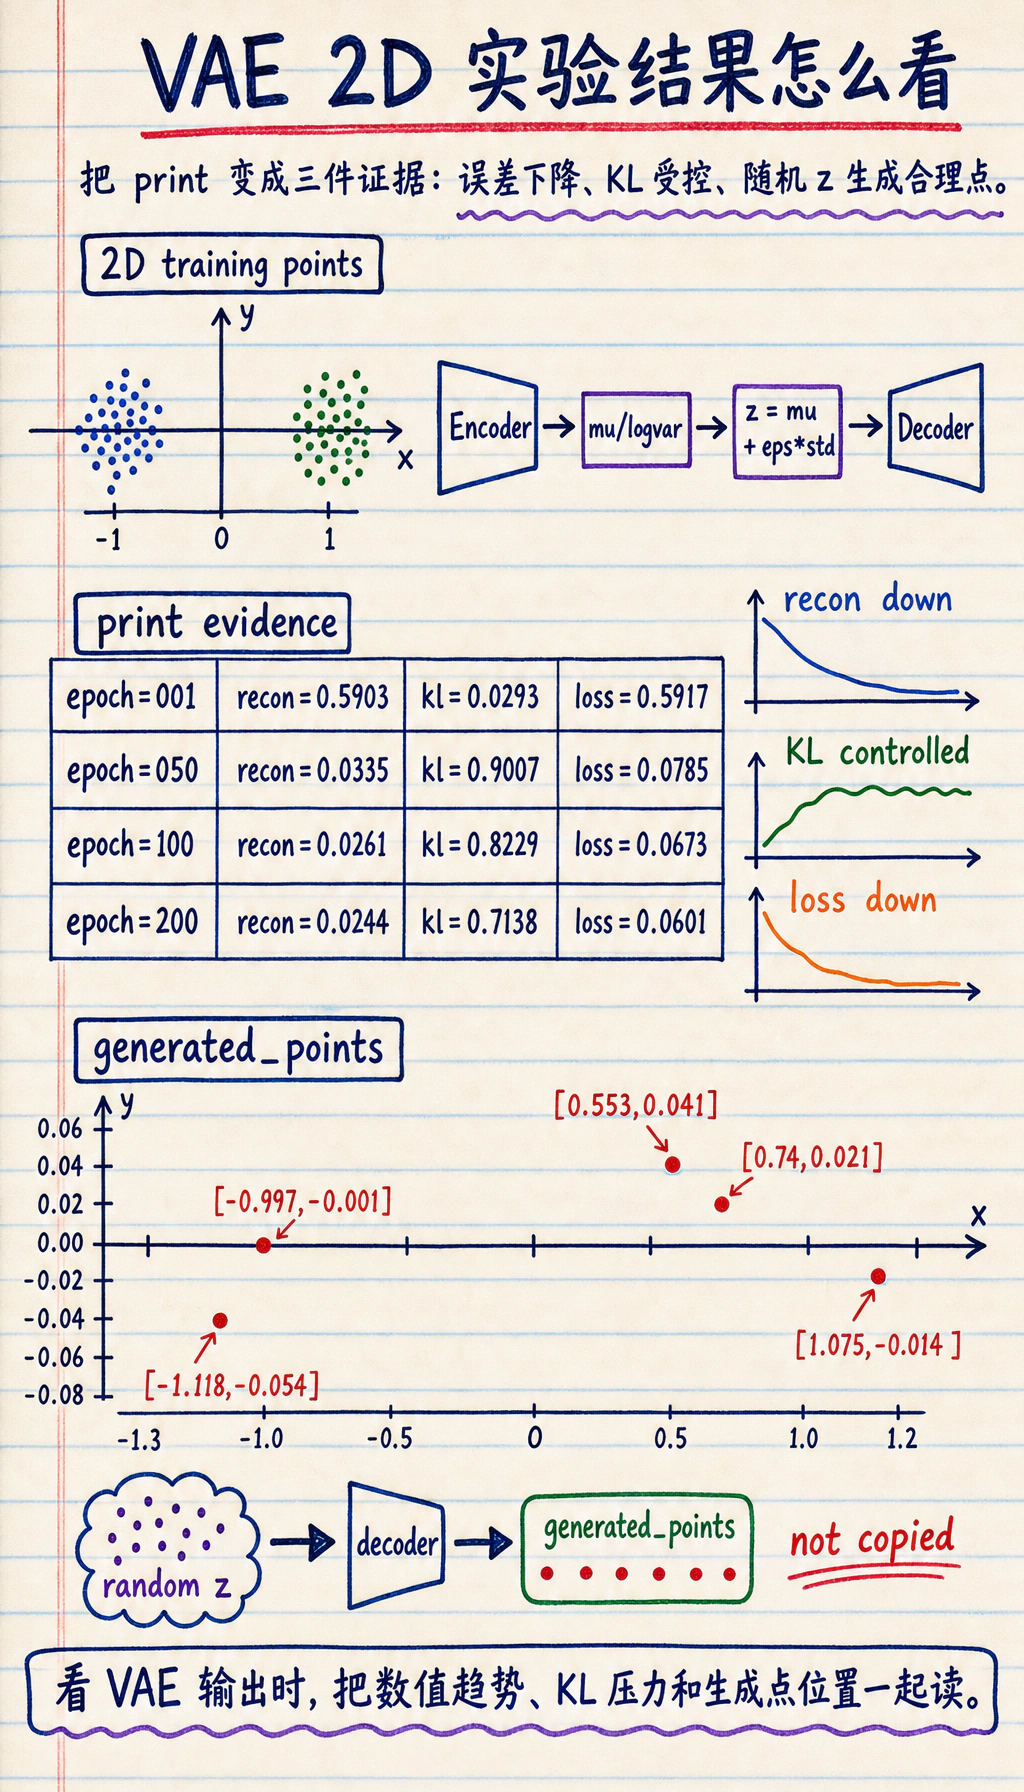 VAE 2D 实验结果怎么看
把 print 变成三件证据：误差下降、KL 受控、随机 z 生成合理点。
2D training points
y
x
-1 0 1
Encoder
mu/logvar
z = mu
+ eps*std
Decoder
print evidence
epoch=001 recon=0.5903 kl=0.0293 loss=0.5917
epoch=050 recon=0.0335 kl=0.9007 loss=0.0785
epoch=100 recon=0.0261 kl=0.8229 loss=0.0673
epoch=200 recon=0.0244 kl=0.7138 loss=0.0601
recon down
KL controlled
loss down
generated_points
y
0.06
0.04
0.02
0.00
-0.02
-0.04
-0.06
-0.08
[0.553,0.041]
[0.74,0.021]
[-0.997,-0.001]
x
[1.075,-0.014 ]
[-1.118,-0.054]
-1.3 -1.0 -0.5 0 0.5 1.0 1.2
random z
decoder
generated_points
not copied
看 VAE 输出时, 把数值趋势、KL 压力和生成点位置一起读。